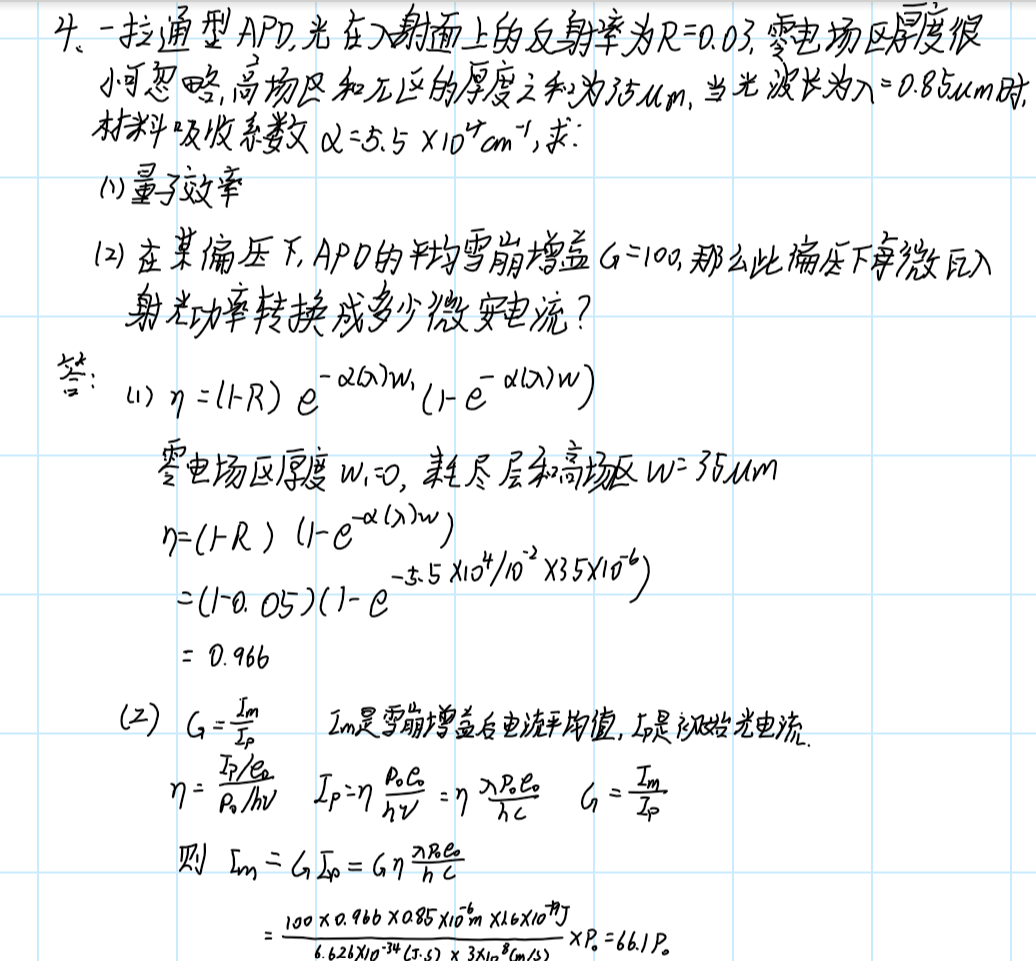 4、一拉通型APD,光在入射面上的反射率为R=0.03,零电场区厚度很
小可忽略,高场区和π区的厚度之和为35μm,当光波长为λ=0.85μm时,
材料吸收系数α=5.5×10⁴cm⁻¹,求:
(1)量子效率
(2)在某偏压下,APD的平均雪崩增益G=100,那么此偏压下每微瓦入
射光功率转换成多少微安电流?
答: (1) η=(1-R) e^{-α(λ)W₁} (1-e^{-α(λ)W})
零电场区厚度W₁=0, 耗尽层和高场区W=35μm
η=(1-R) (1-e^{-α(λ)W})
=(1-0.05)(1-e^{-5.5×10⁴/10⁻²×35×10⁻⁶})
= 0.966
(2) G=Im/Ip Im是雪崩增益后电流平均值, Ip是初始光电流.
η=(Ip/e₀)/(P₀/hν) Ip=η P₀e₀/hν =η λP₀e₀/hc G=Im/Ip
则 Im=GIp=Gη λP₀e₀/hc
= (100×0.966×0.85×10⁻⁶m×1.6×10⁻¹⁹J)/(6.626×10⁻³⁴(J·s)×3×10⁸(m/s)) ×P₀=66.1P₀